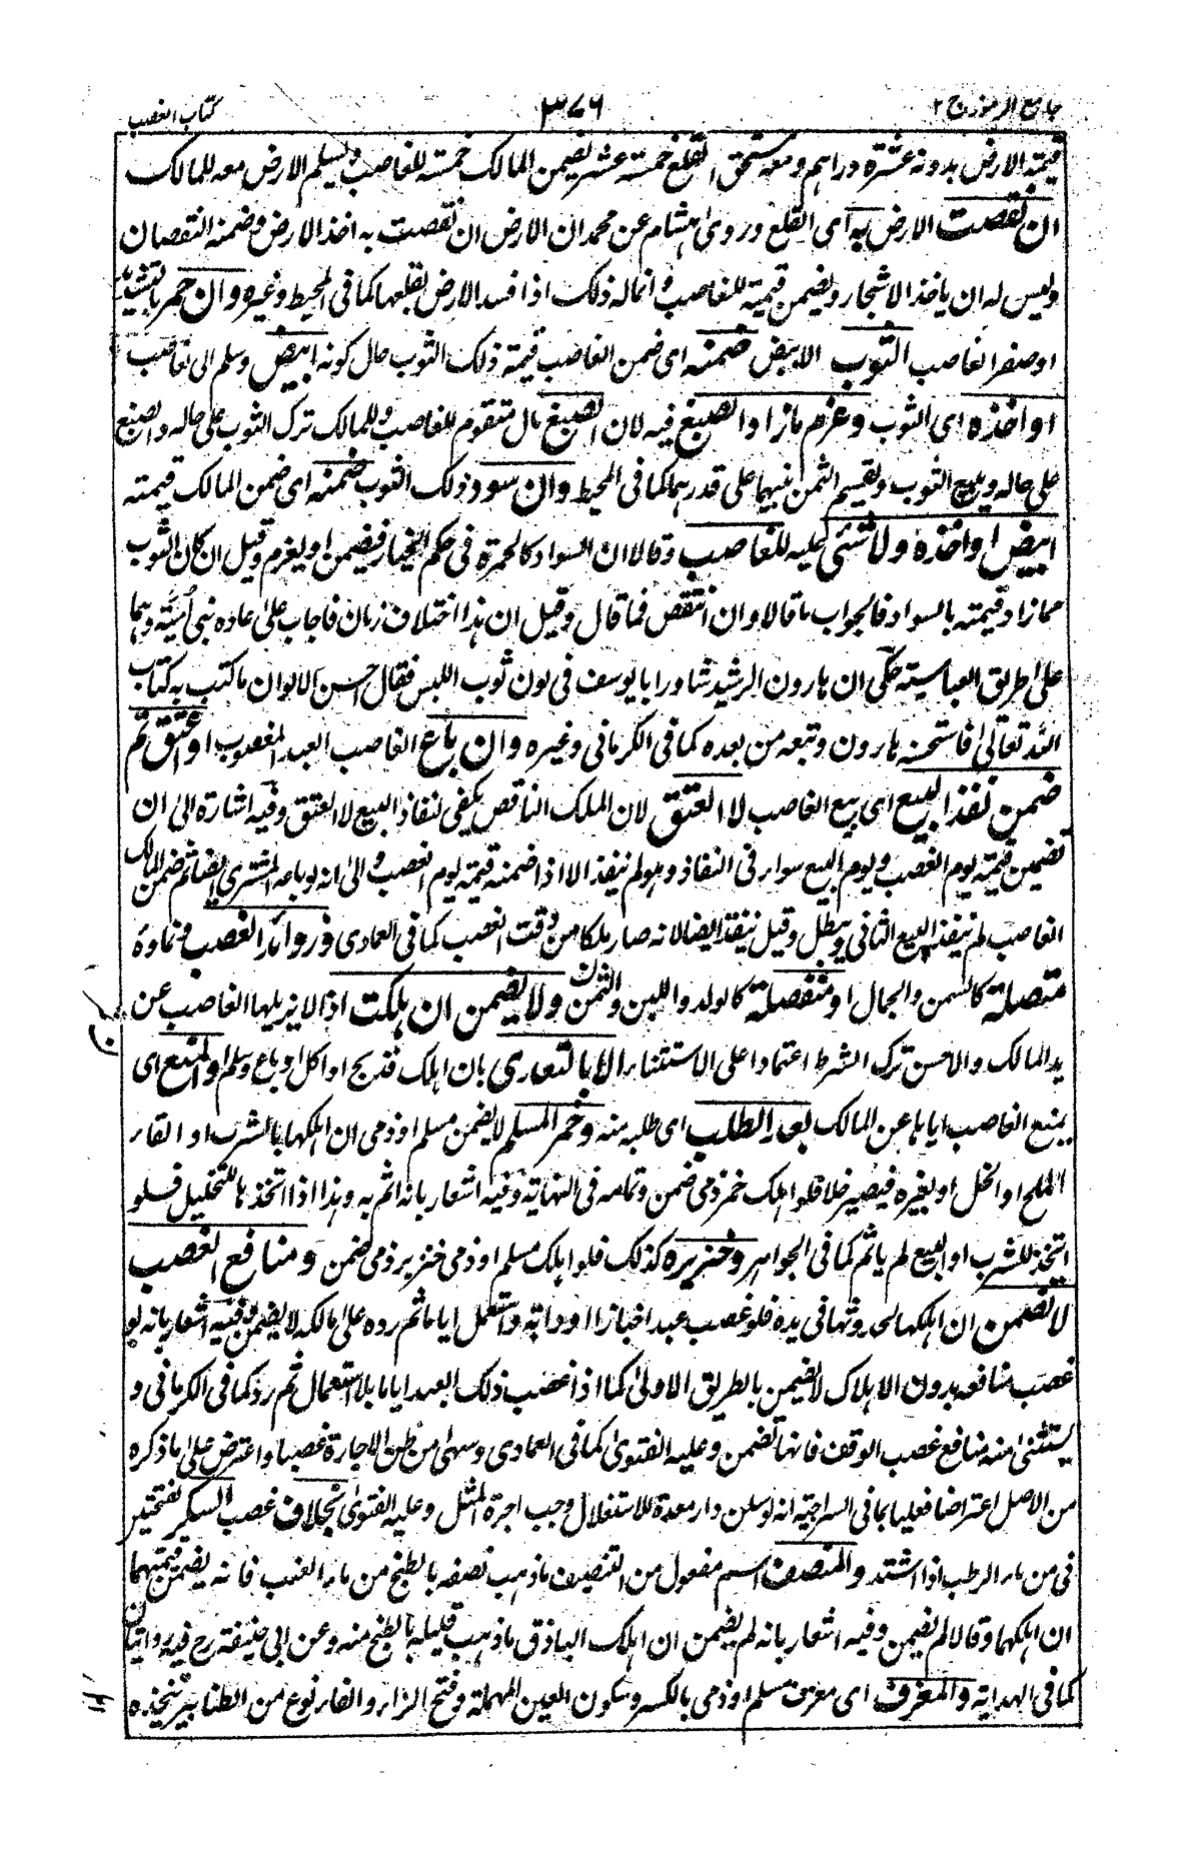 جامع الرموز ج ٢ ٣٧٦ كتاب الغصب
قيمة الارض بدونه عشرة دراهم ومعه مستحق القلع خمسة عشر يضمن المالك خمسة للغاصب ويسلم الارض معه للمالك
ان نقصت الارض به اى القلع وروى هشام عن محمد ان الارض ان نقصت به اخذ الارض وضمنه النقصان
وليس له ان ياخذ الاشجار ويضمن قيمته للغاصب وانما له ذلك اذا فسد الارض بقلعها كما فى المحيط وغيره وان حمر بالتشديد
او صفر الغاصب الثوب الابيض ضمنه اى ضمن الغاصب قيمة ذلك الثوب حال كونه ابيض وسلم الى غاصب
او اخذه اى الثوب وغرم ما زاد الصبغ فيه لان الصبغ مال متقوم للغاصب وللمالك ترك الثوب على حاله والصبغ
على حاله ويبيع الثوب ويقسم الثمن بينهما على قدرهما كما فى المحيط وان سود ذلك الثوب ضمنه اى ضمن المالك قيمته
ابيض او اخذه ولا شئ عليه للغاصب وقالا ان السواد كالحمرة فى حكم الخيار فيضمن او يغرم وقيل ان كان الثوب
مما زاد قيمته بالسواد فالجواب ما قالا وان انتقص فما قال وقيل ان هذا اختلاف زمان فاجاب على عادة بنى امية وهما
على طريق العباسية حكى ان هارون الرشيد شاور ابا يوسف فى لون ثوب اللبس فقال احسن الالوان ما كتب به كتاب
الله تعالى فاستحسنه هارون وتبعه من بعده كما فى الكرمانى وغيره وان باع الغاصب العبد المغصوب او اعتق ثم
ضمن نفذ البيع اى بيع الغاصب لا العتق لان الملك الناقص يكفى لنفاذ البيع لا العتق وفيه اشارة الى ان
تضمين قيمته يوم الغصب ويوم البيع سواء فى النفاذ وهو لم ينفذ الا اذا ضمنه قيمته يوم الغصب والى انه لو باعه المشترى ايضا ثم ضمن المالك
الغاصب لم ينفذ البيع الثانى ويبطل وقيل ينفذ ايضا لانه صار ملكا من وقت الغصب كما فى العمادى وزوائد الغصب ونماؤه
متصلة كالسمن والجمال او منفصلة كالولد واللبن والثمن ولا يضمن ان هلكت اذ لا يزيلها الغاصب عن
يد المالك والاحسن ترك الشرط اعتمادا على الاستثناء الا بالتعدى بان اهلك فذبح او اكل او باع وسلم او المنع اى
يمنع الغاصب اياها عن المالك بعد الطلب اى طلبه منه وخمر المسلم لا يضمن مسلم او ذمى ان اهلكها بالشرب او القاء
الملح او الخل او بغيره فيصير خلا فلو اهلك خمر ذمى ضمن وتمامه فى النهاية وفيه اشعار بانه اثم به وهذا اذا اتخذها للتخليل فلو
اتخذ للشرب او البيع لم ياثم كما فى الجواهر وخنزيره كذلك فلو اهلك مسلم او ذمى خنزير ذمى ضمن ومنافع الغصب
لا تضمن ان اهلكها فى يده فلو غصب عبدا خبازا او دابة واستعمل اياما ثم رده على مالكه لا يضمن وفيه اشعار بانه لو
غصب منافعه بدون الاهلاك لا يضمن بالطريق الاولى كما اذا غصب ذلك العبد اياما بلا استعمال ثم رد كما فى الكرمانى و
يستثنى منه منافع غصب الوقف فانها تضمن وعليه الفتوى كما فى العمادى وسهى من ظن الاجارة غصبا واعترض على ما ذكره
من الاصل اعتراضا فعليا بما فى السراجية انه لو سكن دار معدة للاستغلال وجب اجرة المثل وعليه الفتوى بخلاف غصب السكر بفتحتين
فى من ماء الرطب اذا اشتد والمنصف اسم مفعول من التنصيف ما ذهب نصفه بالطبخ من ماء العنب فانه يضمن قيمتهما
ان اهلكهما وقالا لم يضمن وفيه اشعار بانه لم يضمن ان اهلك الباذق ما ذهب قليله بالطبخ منه وعن ابى حنيفة رح فيه روايتان
كما فى الهداية والمعزف اى معزف مسلم او ذمى بالكسر وسكون العين المهملة وفتح الزاء والفاء نوع من الطنابير يتخذه